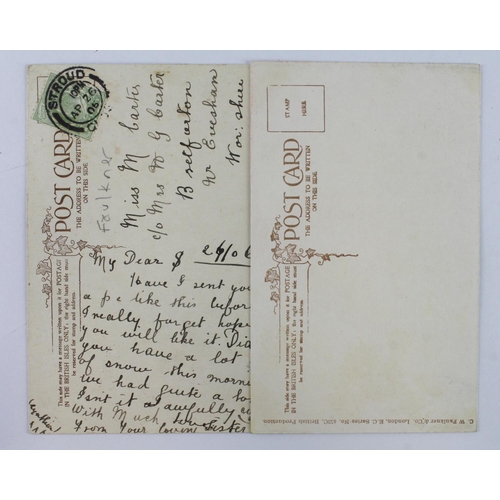 STROUD
10 PM
AP 26
06
POST CARD
THE ADDRESS TO BE WRITTEN
ON THIS SIDE
This side may have a message written upon it for POSTAGE
IN THE BRITISH ISLES ONLY; the right hand side must
be reserved for stamp and address.
Faulkner
Miss M Carter
c/o Mrs W G Carter
Bretforton
Nr Evesham
Wor: shire
My Dear S 26/06
Have I sent you
a pc like this before
I really forget hope
you will like it. Did
you have a lot
of snow this morne
we had quite a
Isn't it awfully
With Much
From Your loving Sister
STAMP
HERE
POST CARD
THE ADDRESS TO BE WRITTEN
ON THIS SIDE
This side may have a message written upon it for POSTAGE
IN THE BRITISH ISLES ONLY; the right hand side must
be reserved for stamp and address.
C. W. Faulkner & Co., London, E.C. Series No. British Production.